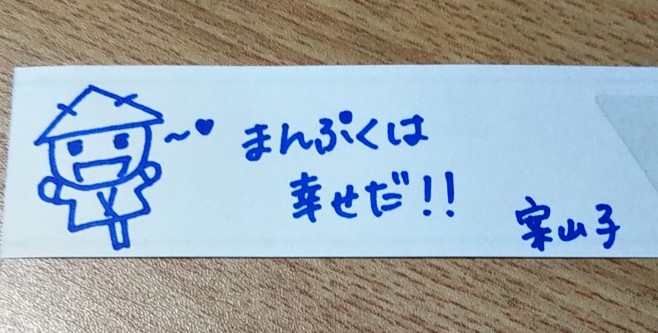 まんぷくは
幸せだ!!
案山子